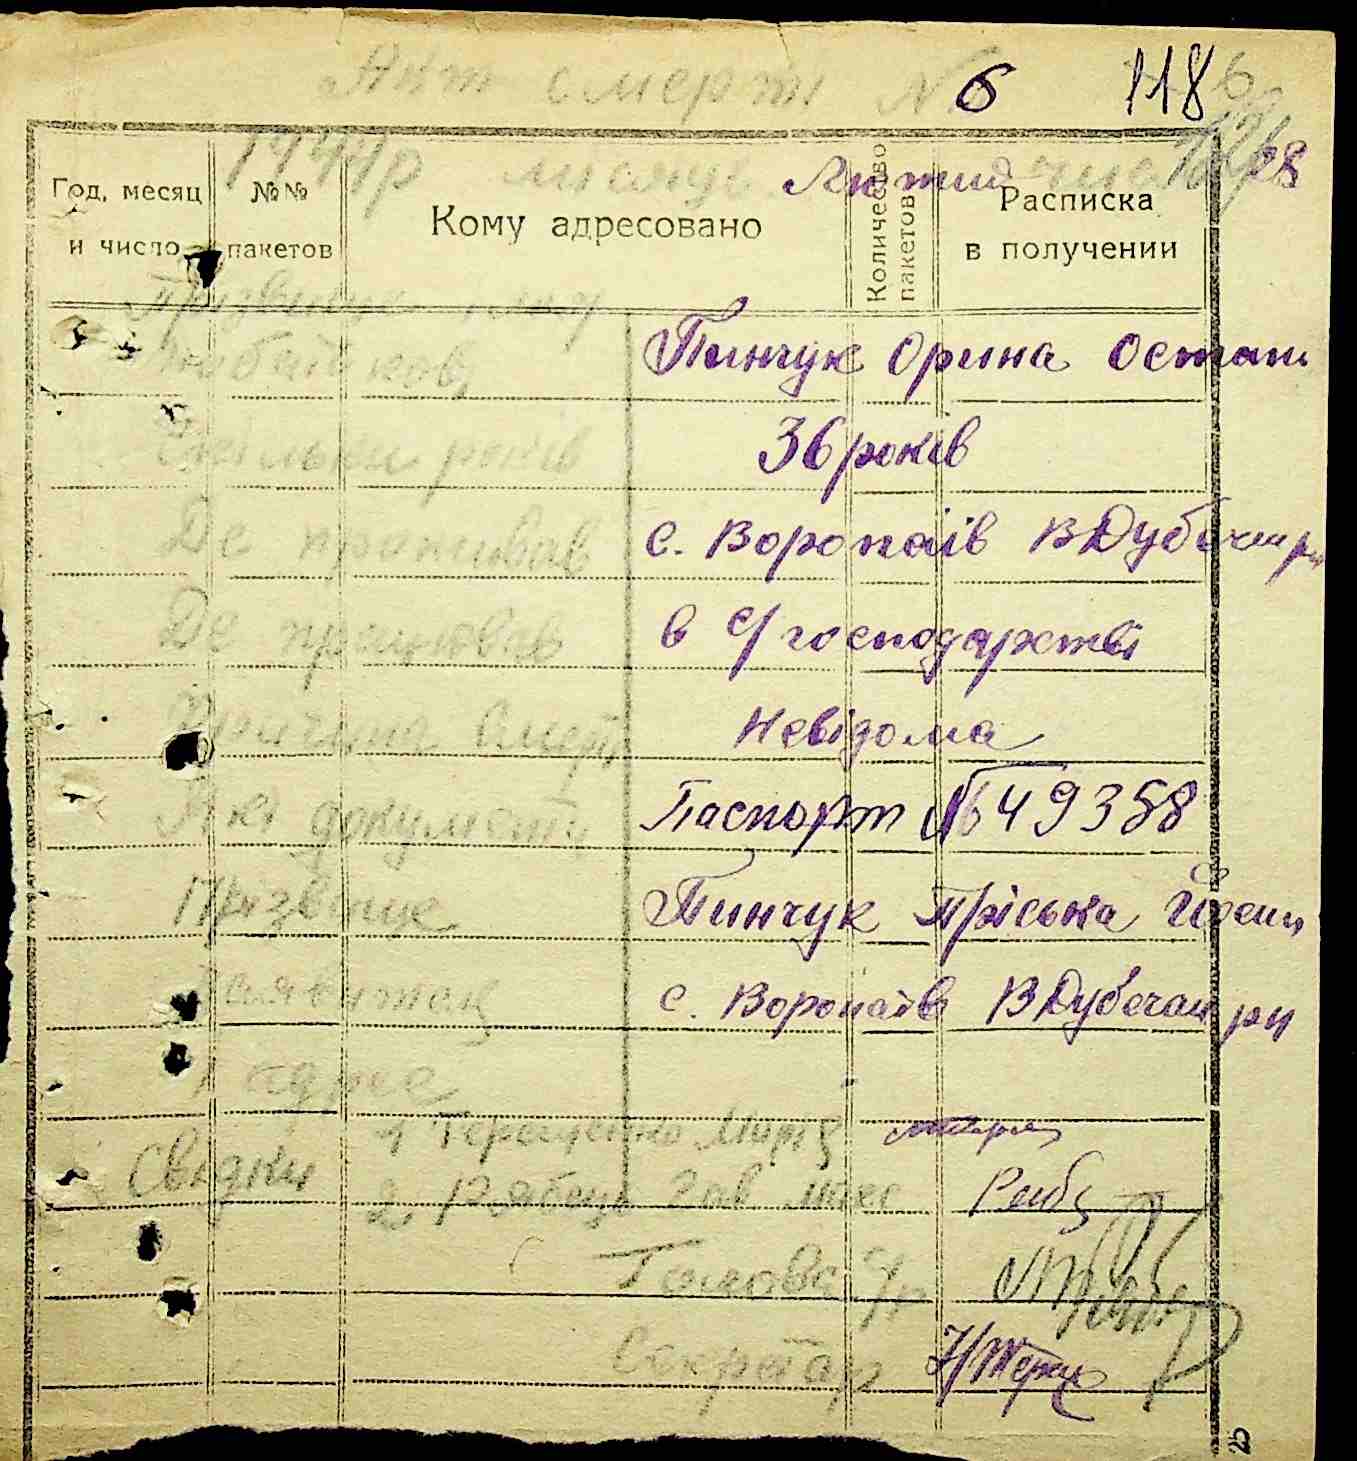 Акт смерті № 6 118
1944р місяць Лютий число 28
Год, месяц и число
№№ пакетов
Кому адресовано
Количество пакетов
Расписка в получении
Прізвище і імя
побатькові Пинчук Орина Остап
Скільки років 36 років
Де проживав с. Воропаїв ВДубечан рн
Де працював в с/господарстві
Причина смерті Невідома
Які документи Паспорт № 49388
Прізвище Пинчук Пріська Йосип
заявитель с. Воропаїв ВДубечан рн
і адрес
Свідки 1 Терещенко Марія
2. Рябець Гав Рябец
Голова с/р
Секретар
25